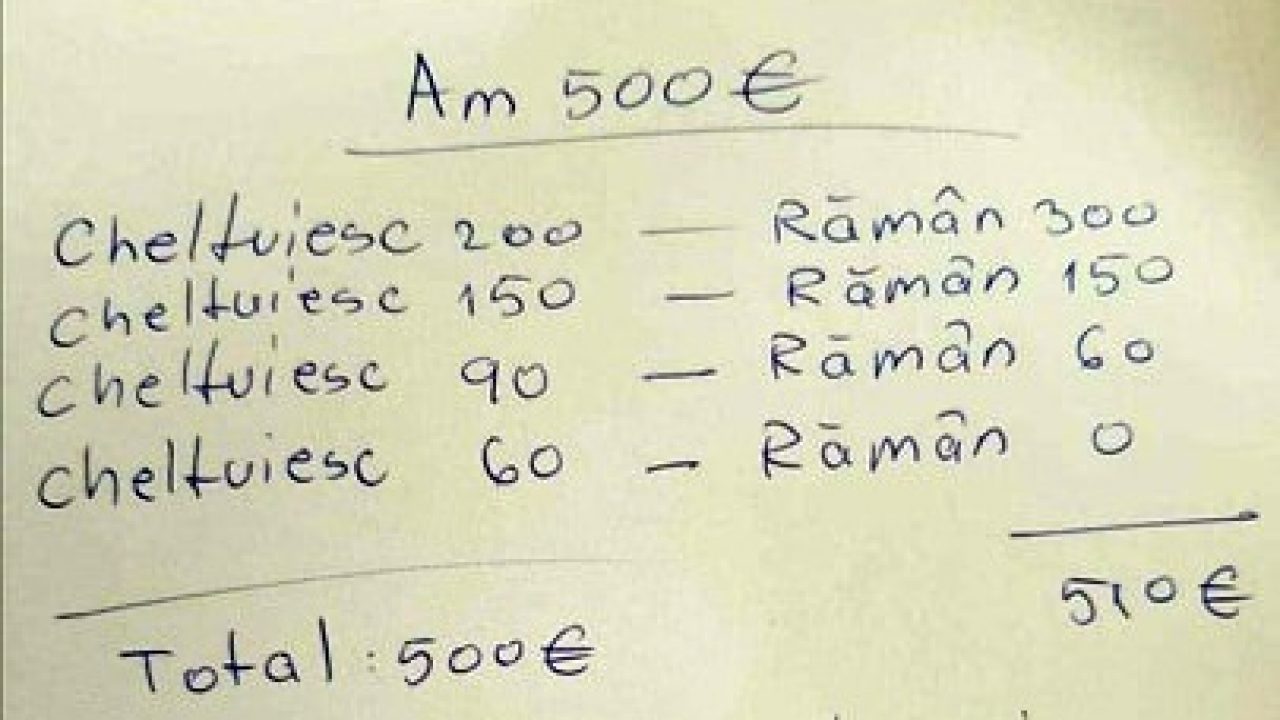 Am 500 €
Cheltuiesc 200 — Rămân 300
Cheltuiesc 150 — Rămân 150
Cheltuiesc 90 — Rămân 60
Cheltuiesc 60 — Rămân 0
510 €
Total: 500 €